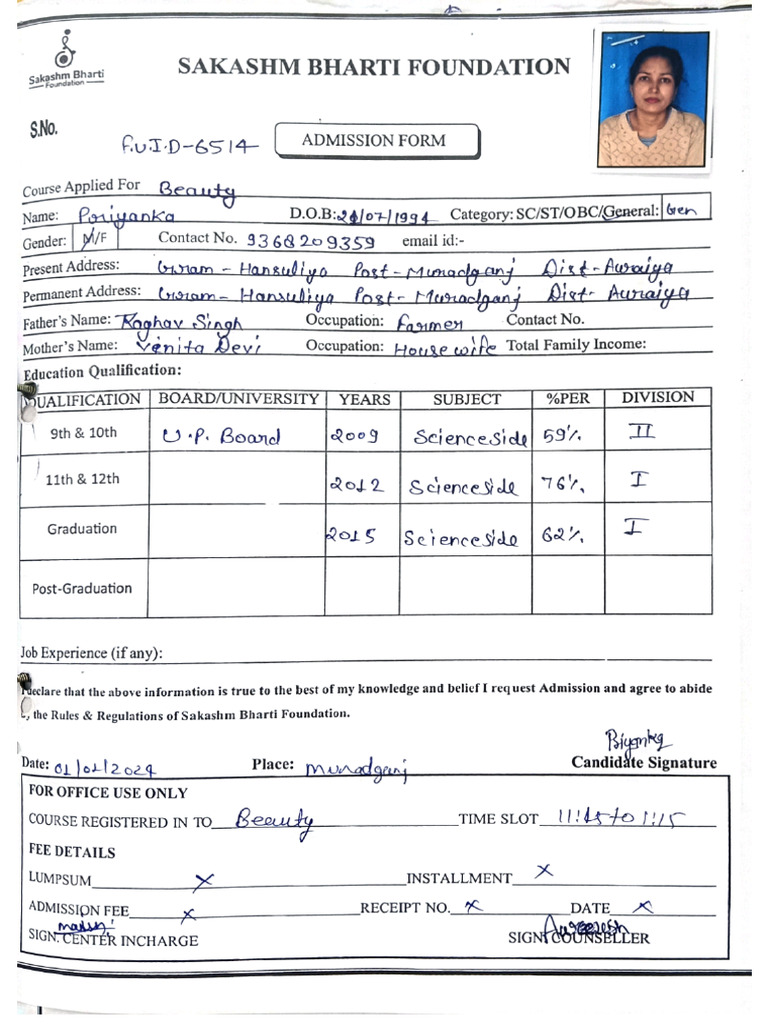 Sakashm Bharti
Foundation
SAKASHM BHARTI FOUNDATION
S.No.
F.U.I.D-6514
ADMISSION FORM
Course Applied For Beauty
Name: Poriyanka D.O.B: /07/1994 Category: SC/ST/OBC/General: Gen
Gender: M/F Contact No. 9368209359 email id:-
Present Address: Gram - Hansuliya Post - Muradganj Dist - Auraiya
Permanent Address: Gram - Hansuliya Post - Muradganj Dist - Auraiya
Father's Name: Raghav Singh Occupation: Farmer Contact No.
Mother's Name: Venita Devi Occupation: House wife Total Family Income:
Education Qualification:
QUALIFICATION BOARD/UNIVERSITY YEARS SUBJECT %PER DIVISION
9th & 10th U.P. Board 2009 Science side 59% II
11th & 12th 2012 Science side 76% I
Graduation 2015 Science side 62% I
Post-Graduation
Job Experience (if any):
I declare that the above information is true to the best of my knowledge and belief I request Admission and agree to abide
the Rules & Regulations of Sakashm Bharti Foundation.
Date: 01/01/2024 Place: Muradganj Candidate Signature
FOR OFFICE USE ONLY
COURSE REGISTERED IN TO Beauty TIME SLOT 11:15 to 1:15
FEE DETAILS
LUMPSUM x INSTALLMENT x
ADMISSION FEE x RECEIPT NO. x DATE x
SIGN. CENTER INCHARGE SIGN. COUNSELLER